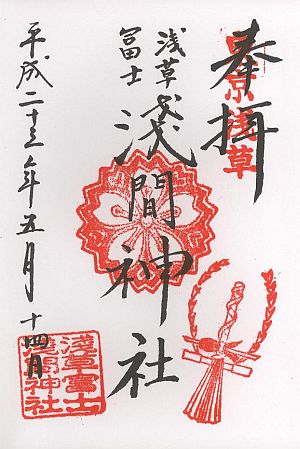 奉拝
東京浅草
浅草
冨士
淺間神社
平成二十三年五月十四日
淺草冨士
淺間神社